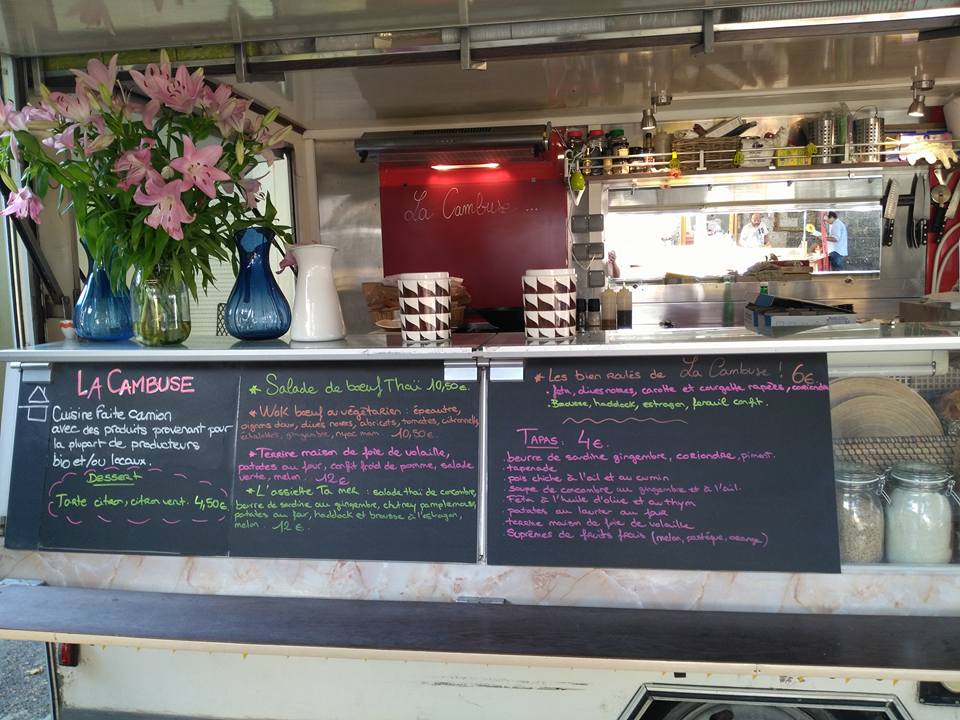 La Cambuse ...
LA CAMBUSE
Cuisine faite camion
avec des produits provenant pour
la plupart de producteurs
bio et/ou locaux.
Dessert
Tarte citron, citron vert. 4,50€
* Salade de bœuf Thaï 10,50€.
* Wok bœuf ou végétarien : épeautre,
oignons doux, olives noires, abricots, tomates, citronnelle,
échalottes, gingembre, nuoc mam. 10,50€.
* Terrine maison de foie de volaille,
patates au four, confit froid de pomme, salade
verte, melon. 12€
* L'assiette Ta meh : salade thaï de concombre,
beurre de sardine au gingembre, chutney pamplemousse,
patates au four, haddock et brousse à l'estragon,
melon. 12€.
* Les bien roulés de La Cambuse ! 6€.
. feta, olives noires, carotte et courgette rapées, coriandre
. Brousse, haddock, estragon, fenouil confit.
TAPAS: 4€.
. beurre de sardine gingembre, coriandre, piment.
. tapenade
. pois chiche à l'ail et au cumin
. soupe de concombre au gingembre et à l'ail.
. Féta à l'huile d'olive et au thym
. patates au laurier au four
. terrine maison de foie de volaille
. Suprêmes de fruits frais (melon, pastèque, orange)